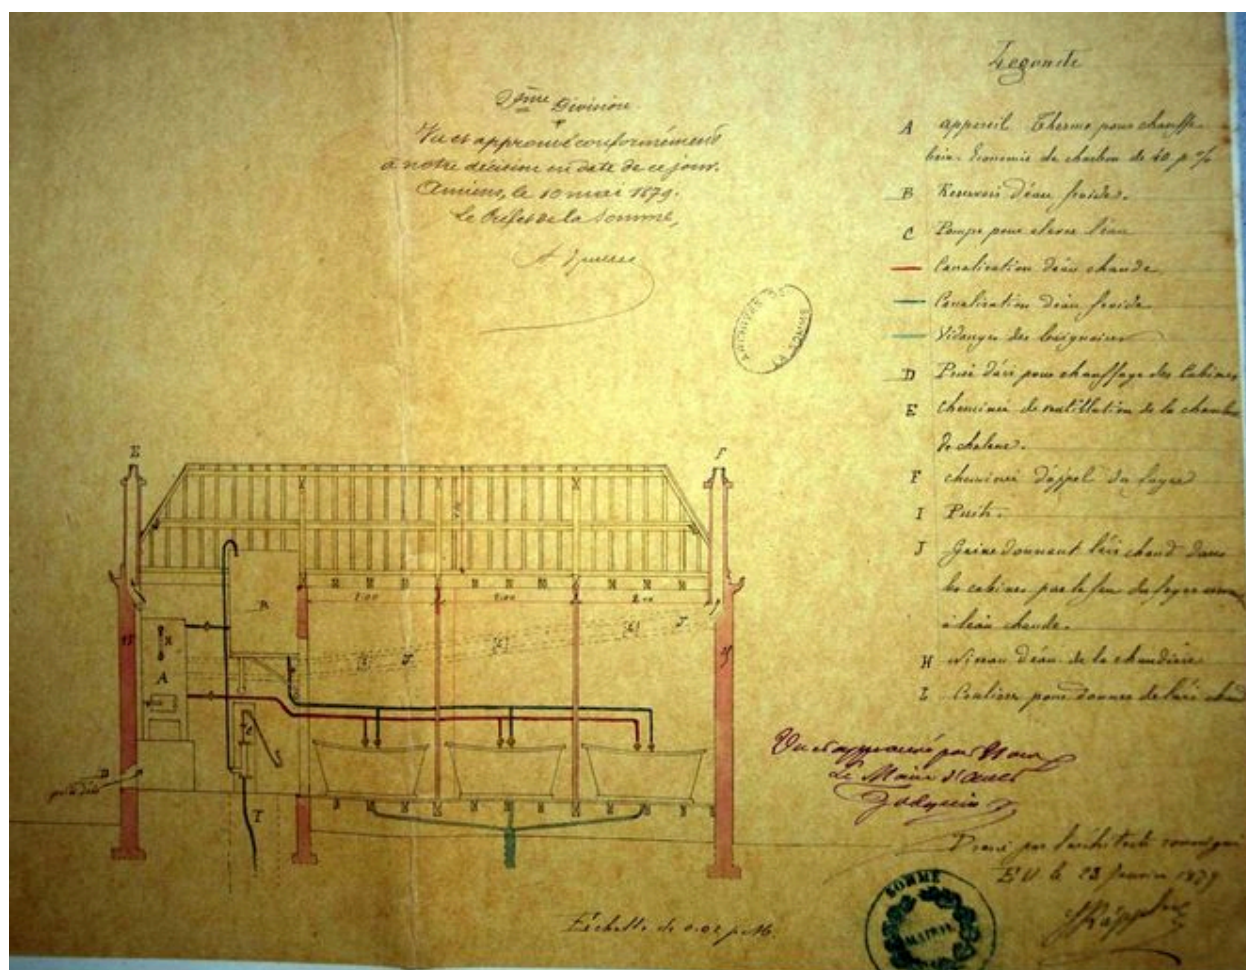 2ème Division
Vu et approuvé conformément
à notre décision en date de ce jour.
Amiens, le 10 mai 1879.
Le Préfet de la Somme,
ARCHIVES DE
Legende
A appareil Thermo pour chauffe
bain. Economie de charbon de 40 p %
B Reservoir d'eau froide.
C Pompe pour elever l'eau
Canalisation d'eau chaude
Canalisation d'eau froide
Vidanges des baignoires
D Prise d'air pour chauffage des Cabines
E Cheminée de ventillation de la chambre
de chaleur.
F cheminée d'appel du foyer
I Puits.
J Gaine donnant l'air chaud dans
les cabines par le feu du foyer
à l'eau chaude.
H Niveau d'eau de la chaudière
L Coulisse pour donner de l'air chaud
E
F
B
1.00
2.00
2.00
J
J
H
A
C
D
I
Vu et approuvé par Nous
Le Maire d'Ault
Dressé par l'architecte soussigné
EU le 23 Janvier 1879
SOMME
MAIRIE
Echelle de 0.02 p. M.